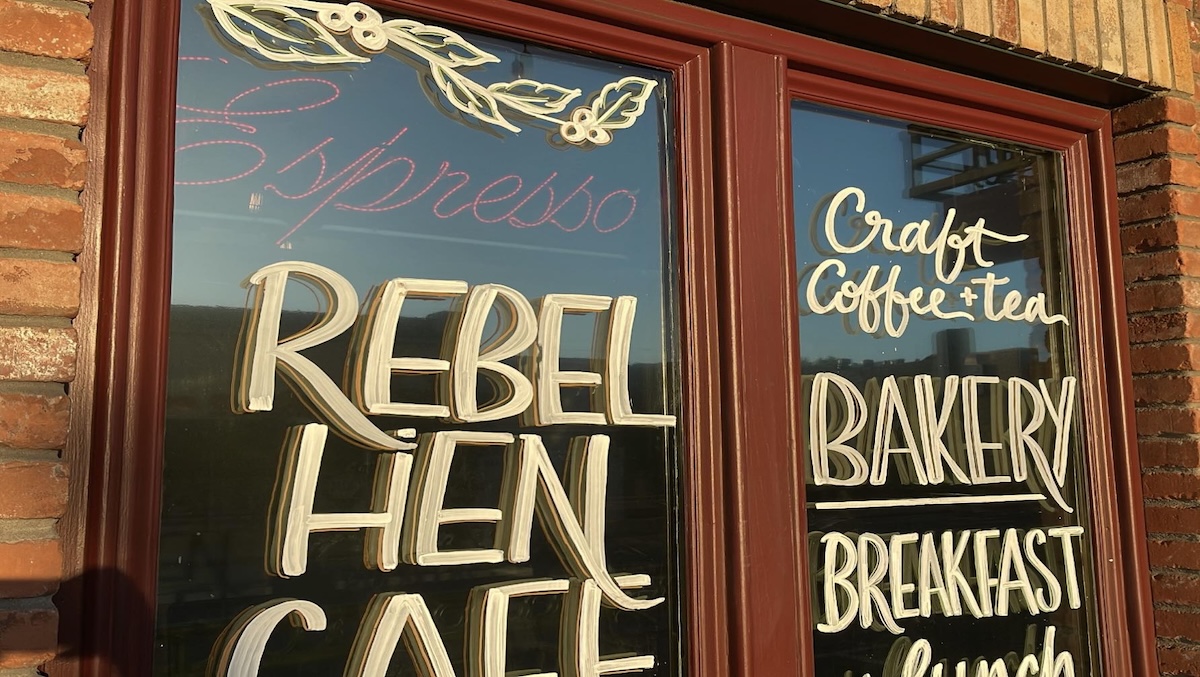 Espresso
REBEL
HEN
CAFE
Craft
Coffee + tea
BAKERY
BREAKFAST
lunch